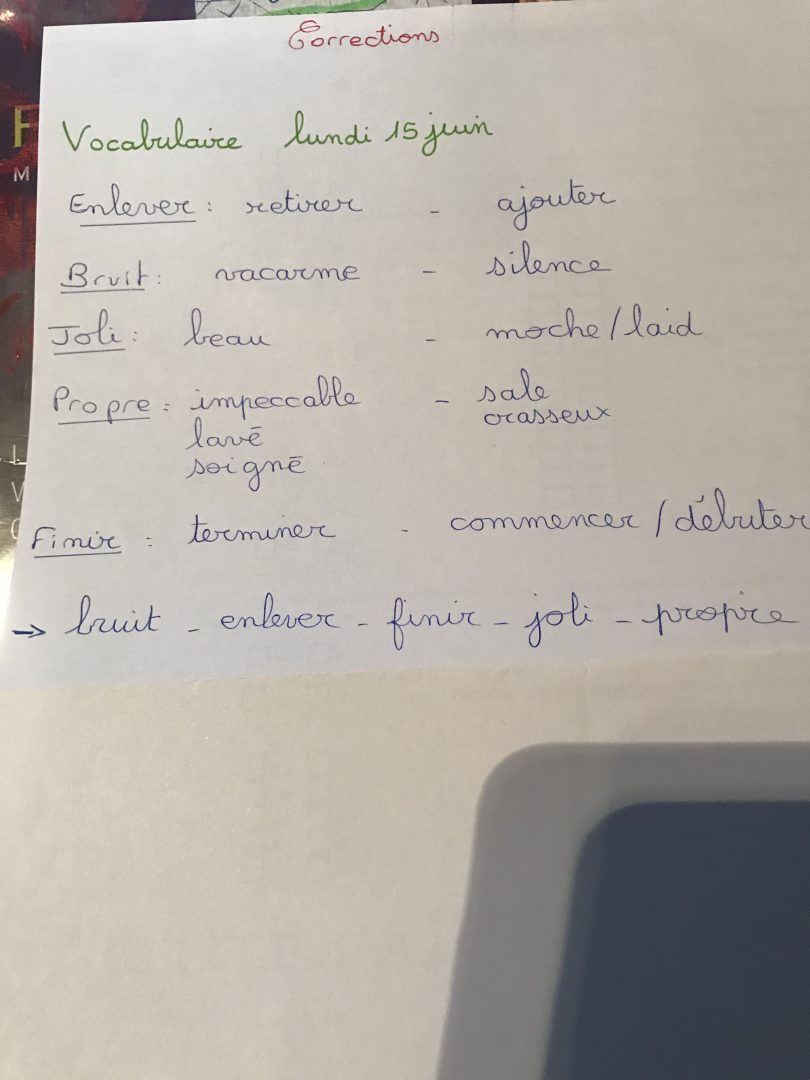 Corrections
Vocabulaire lundi 15 juin
Enlever : retirer - ajouter
Bruit : vacarme - silence
Joli : beau - moche / laid
Propre : impeccable - sale
crasseux
lavé
soigné
Finir : terminer - commencer / débuter
→ bruit - enlever - finir - joli - propre
F
M